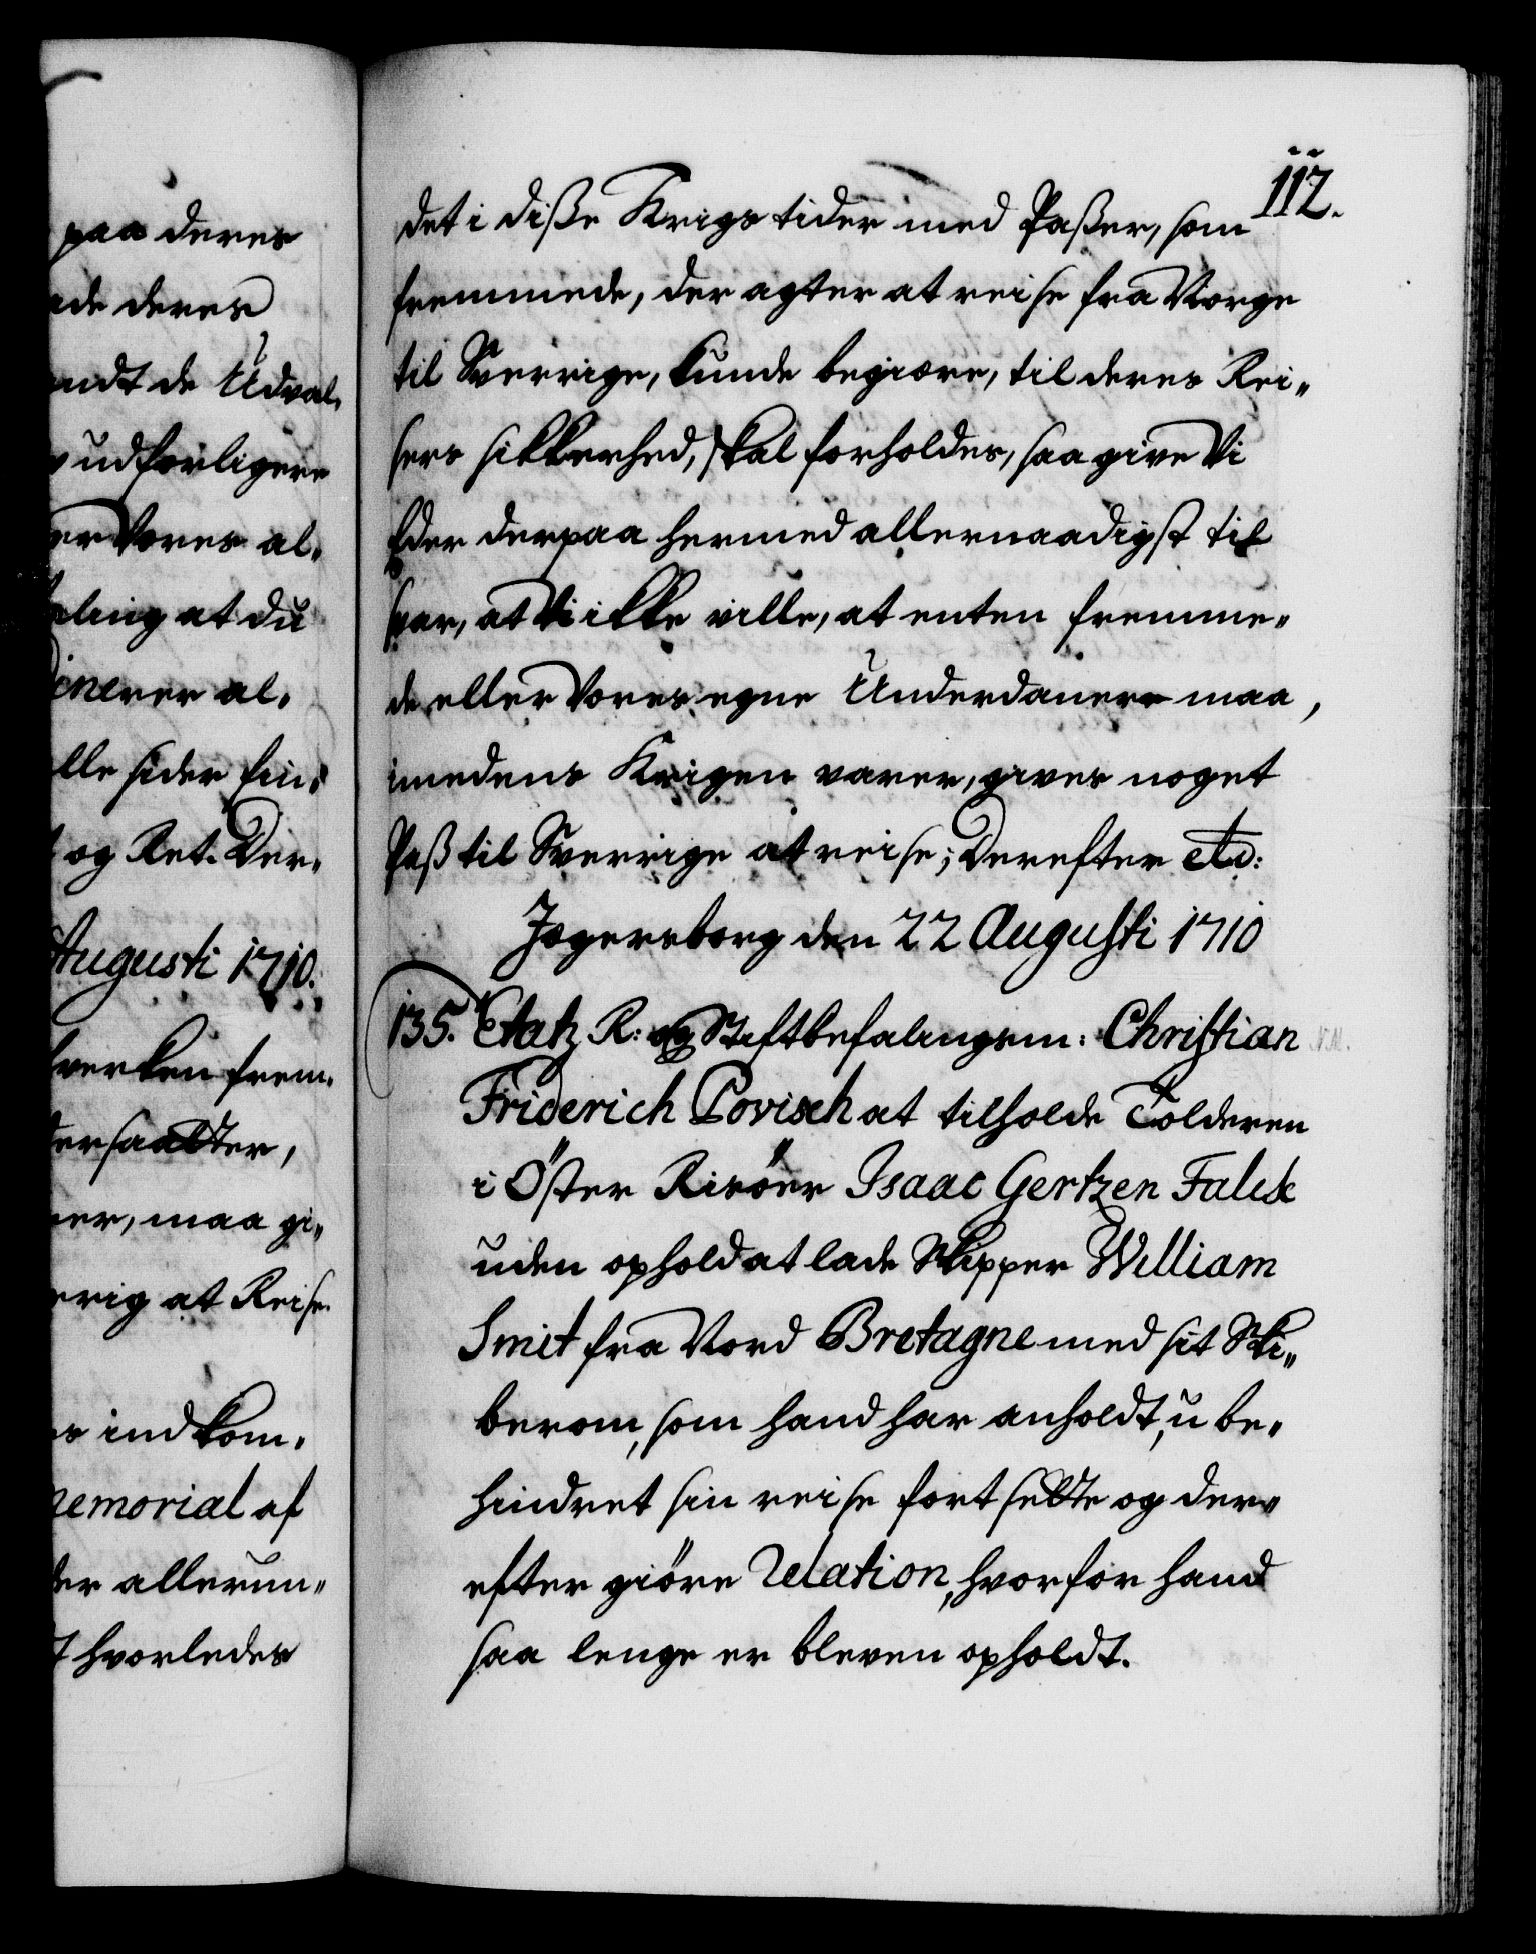 paa deres
ade deres
ndt de Udval„
udførligere
er Vores al„
ling at du
iner er al„
lle sider fin„
og Ret. Der„
Augusti 1710.
hverken frem„
dersaatter,
er, maa gi„
rig at Reise.
s indkom„
memorial af
der allerun„
t hvorledes
112.
det i disse Krigstider med Passer, som
fremmede, der agter at reise fra Norge
til Sverrige, kunde begiære, til deres Rei„
sers sikkerhed, skal forholdes, saa give Vi
Eder derpaa hermed allernaadigst til
svar, at Vi ikke ville, at enten fremme„
de eller Vores egne Underdanere maa,
imedens Krigen varer, gives noget
Pass til Sverrige at reise; Derefter etc:
Jægersborg den 22 Augusti 1710
135. Etatz R: og Stiftbefalingsm: Christian
Friderich Povisch at tilholde Tolderen
i Öster Risöer Isaac Gertzen Falck
uden ophold at lade Skipper William
Smit fra Nord Bretagne med sit Ski„
berom, som hand har anholdt, ube„
hindret sin reise fortsette og der„
efter giöre Relation, hvorfor hand
saa lenge er bleven opholdt.